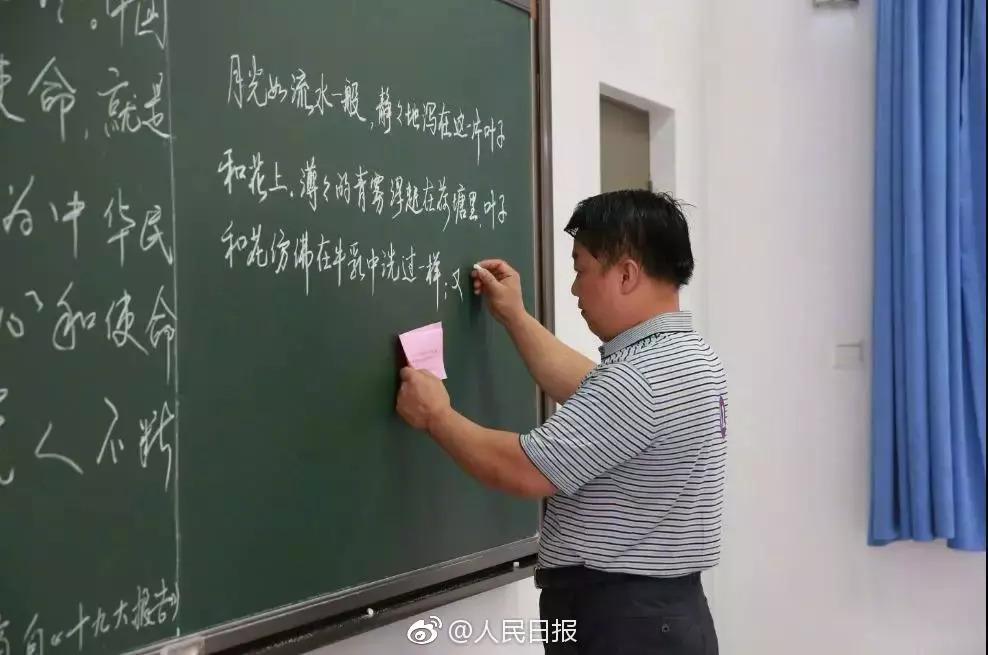 中国
使命,就是
为中华民
心”和使命
人不断
自《十九大报告》
月光如流水一般,静々地泻在这一片叶子
和花上。薄々的青雾浮起在荷塘里。叶子
和花仿佛在牛乳中洗过一样;又
@人民日报